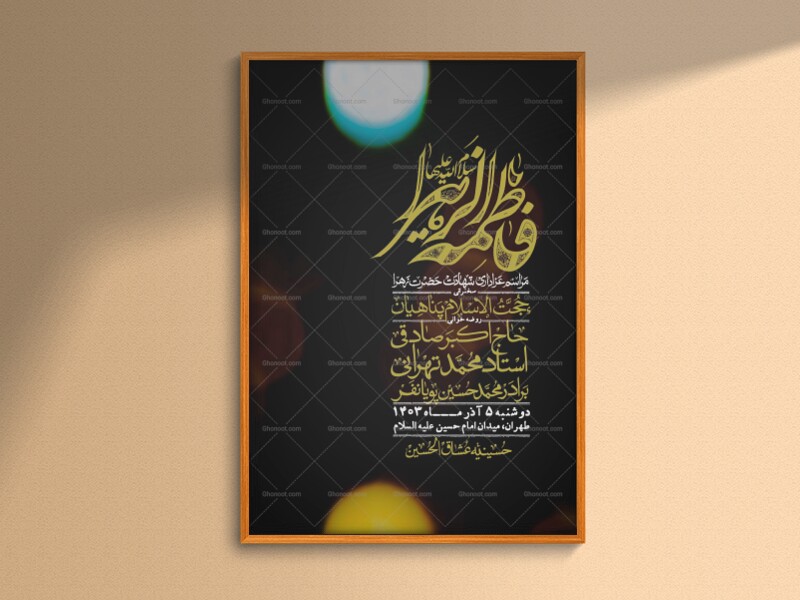 فاطمة الزهرا
سلام الله علیها
مراسم عزاداری شهادت حضرت زهرا
سخنرانی
حجت الاسلام پناهیان
روضه خوانی
حاج اکبر صادقی
استاد محمد تهرانی
برادر محمد حسین پویانفر
دوشنبه ۵ آذر مـــاه ۱۴۰۳
طهران، میدان امام حسین علیه السلام
حسینیه عشاق الحسین
Ghonoot.com